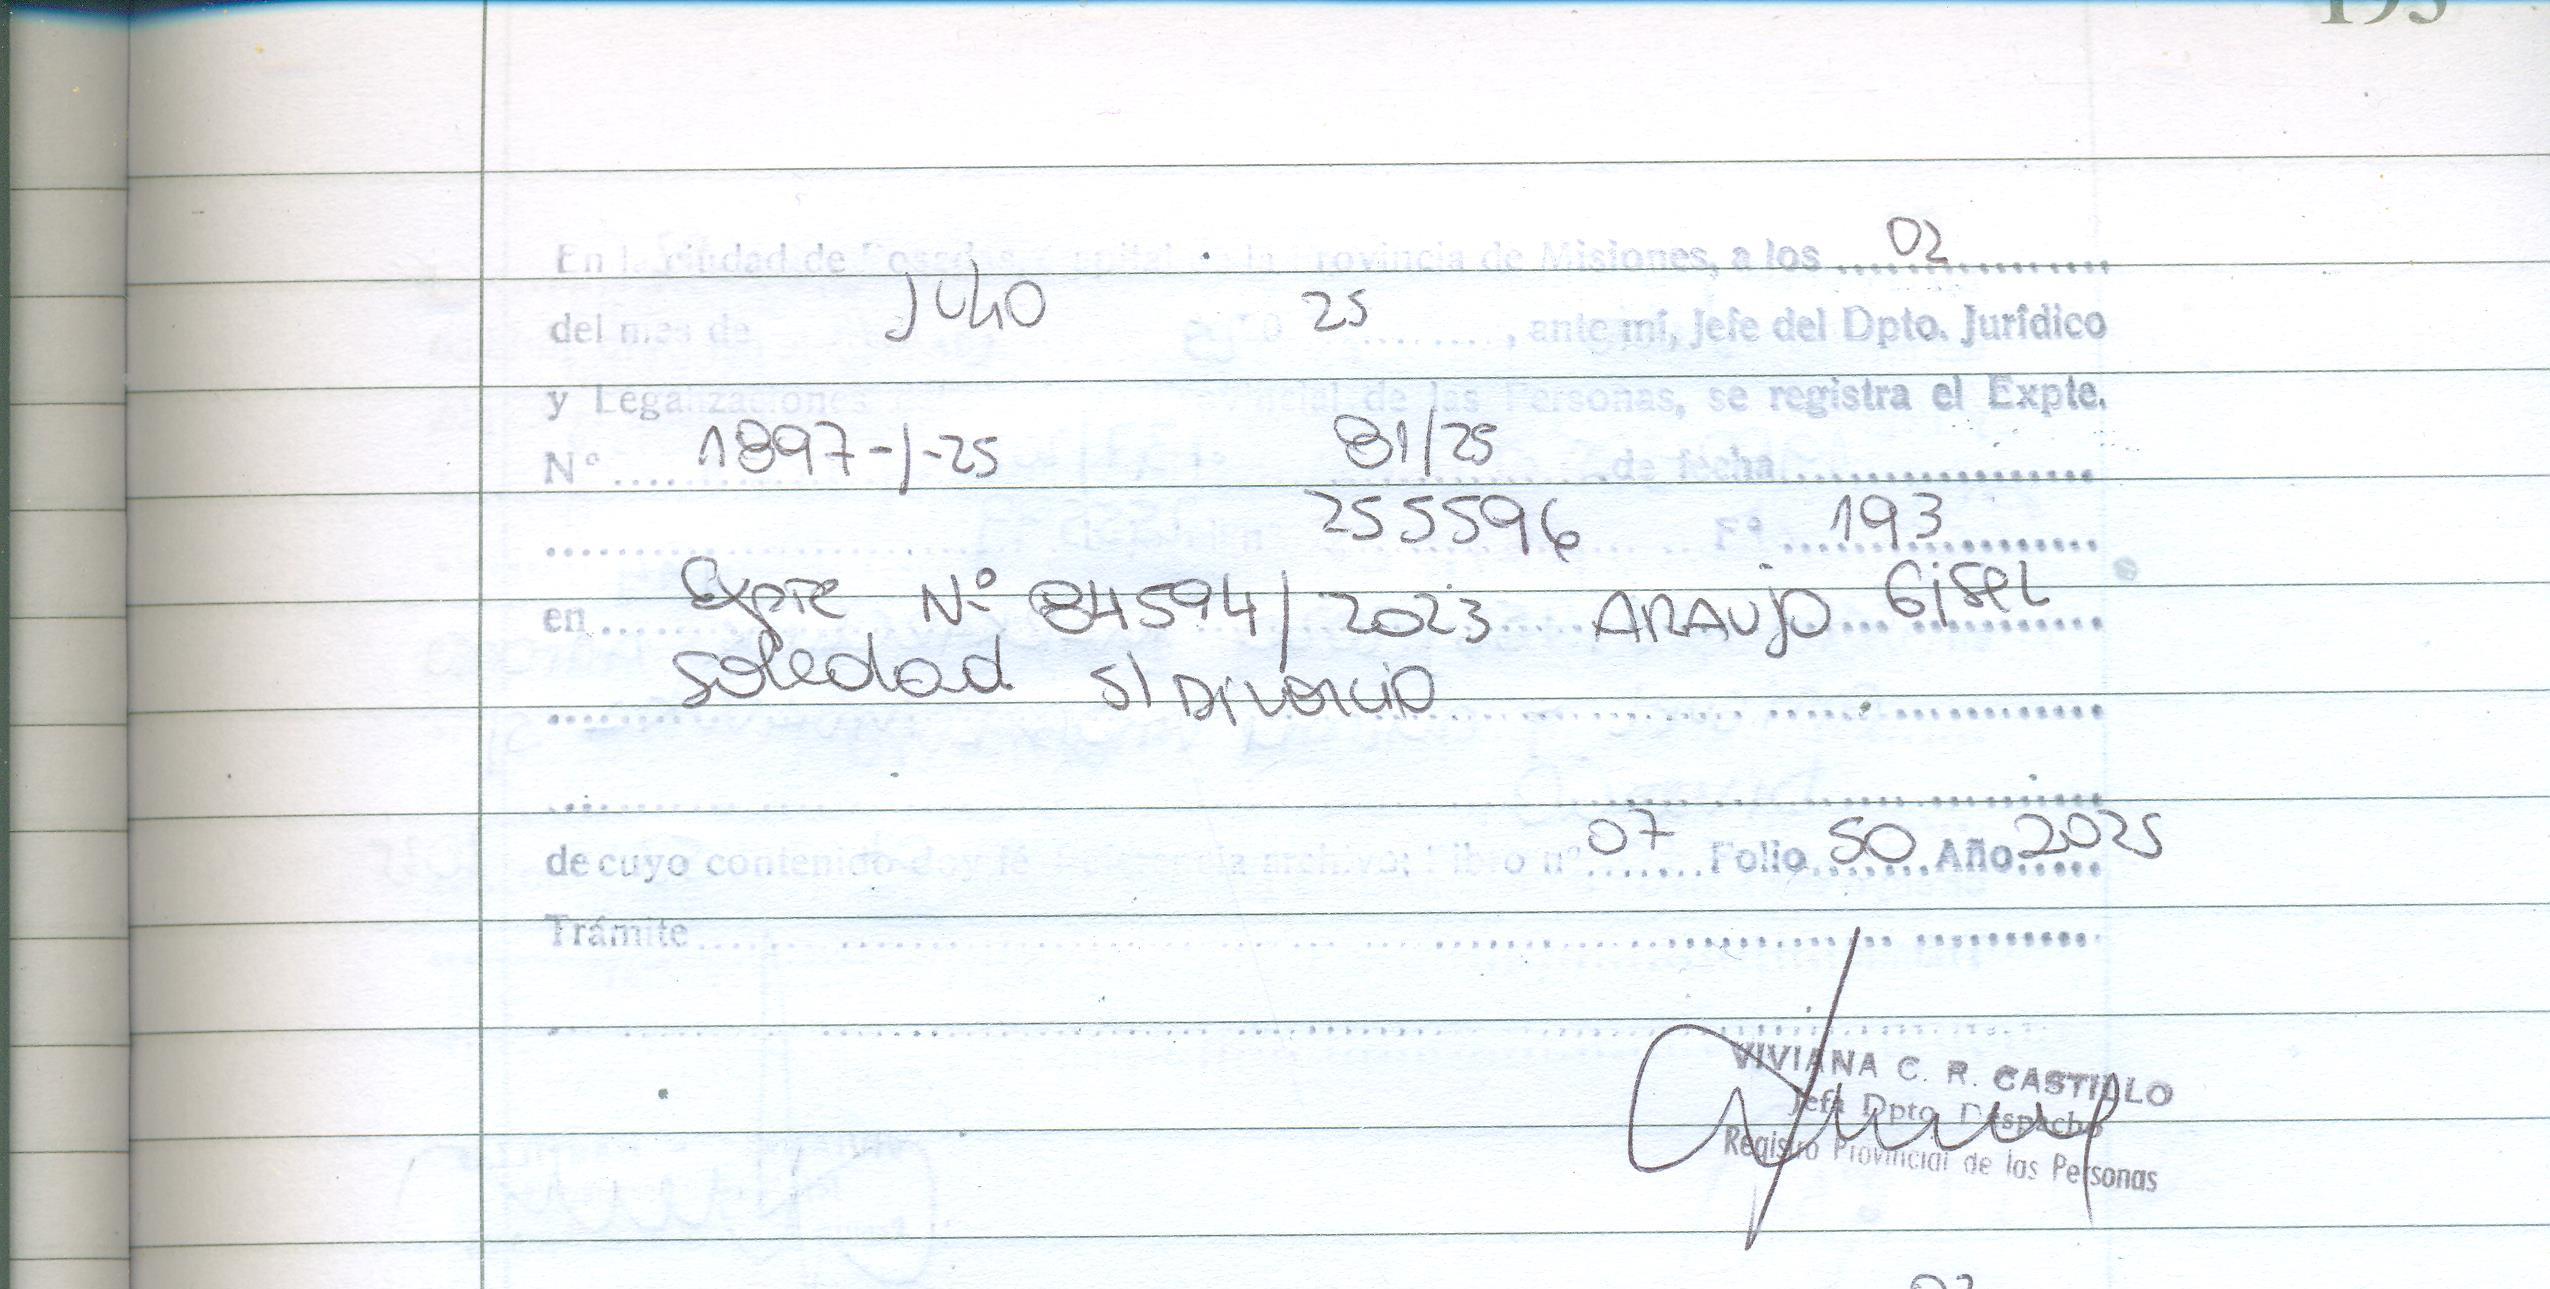 193
En la ciudad de Posadas, Capital de la Provincia de Misiones, a los 02
del mes de JULIO 25, ante mí, Jefe del Dpto. Jurídico
y Legalizaciones Provincial de las Personas, se registra el Expte.
N° 1897-/-25 81/25 de fecha
255596 F° 193
en Expte N° 84594/2023 ARAUJO Gisel
Soledad S/ DIVORCIO
de cuyo contenido doy fé archivo: Libro n° 07 Folio 50 Año 2025
Trámite
VIVIANA C. R. CASTILLO
Jefa Dpto. Despacho
Registro Provincial de las Personas